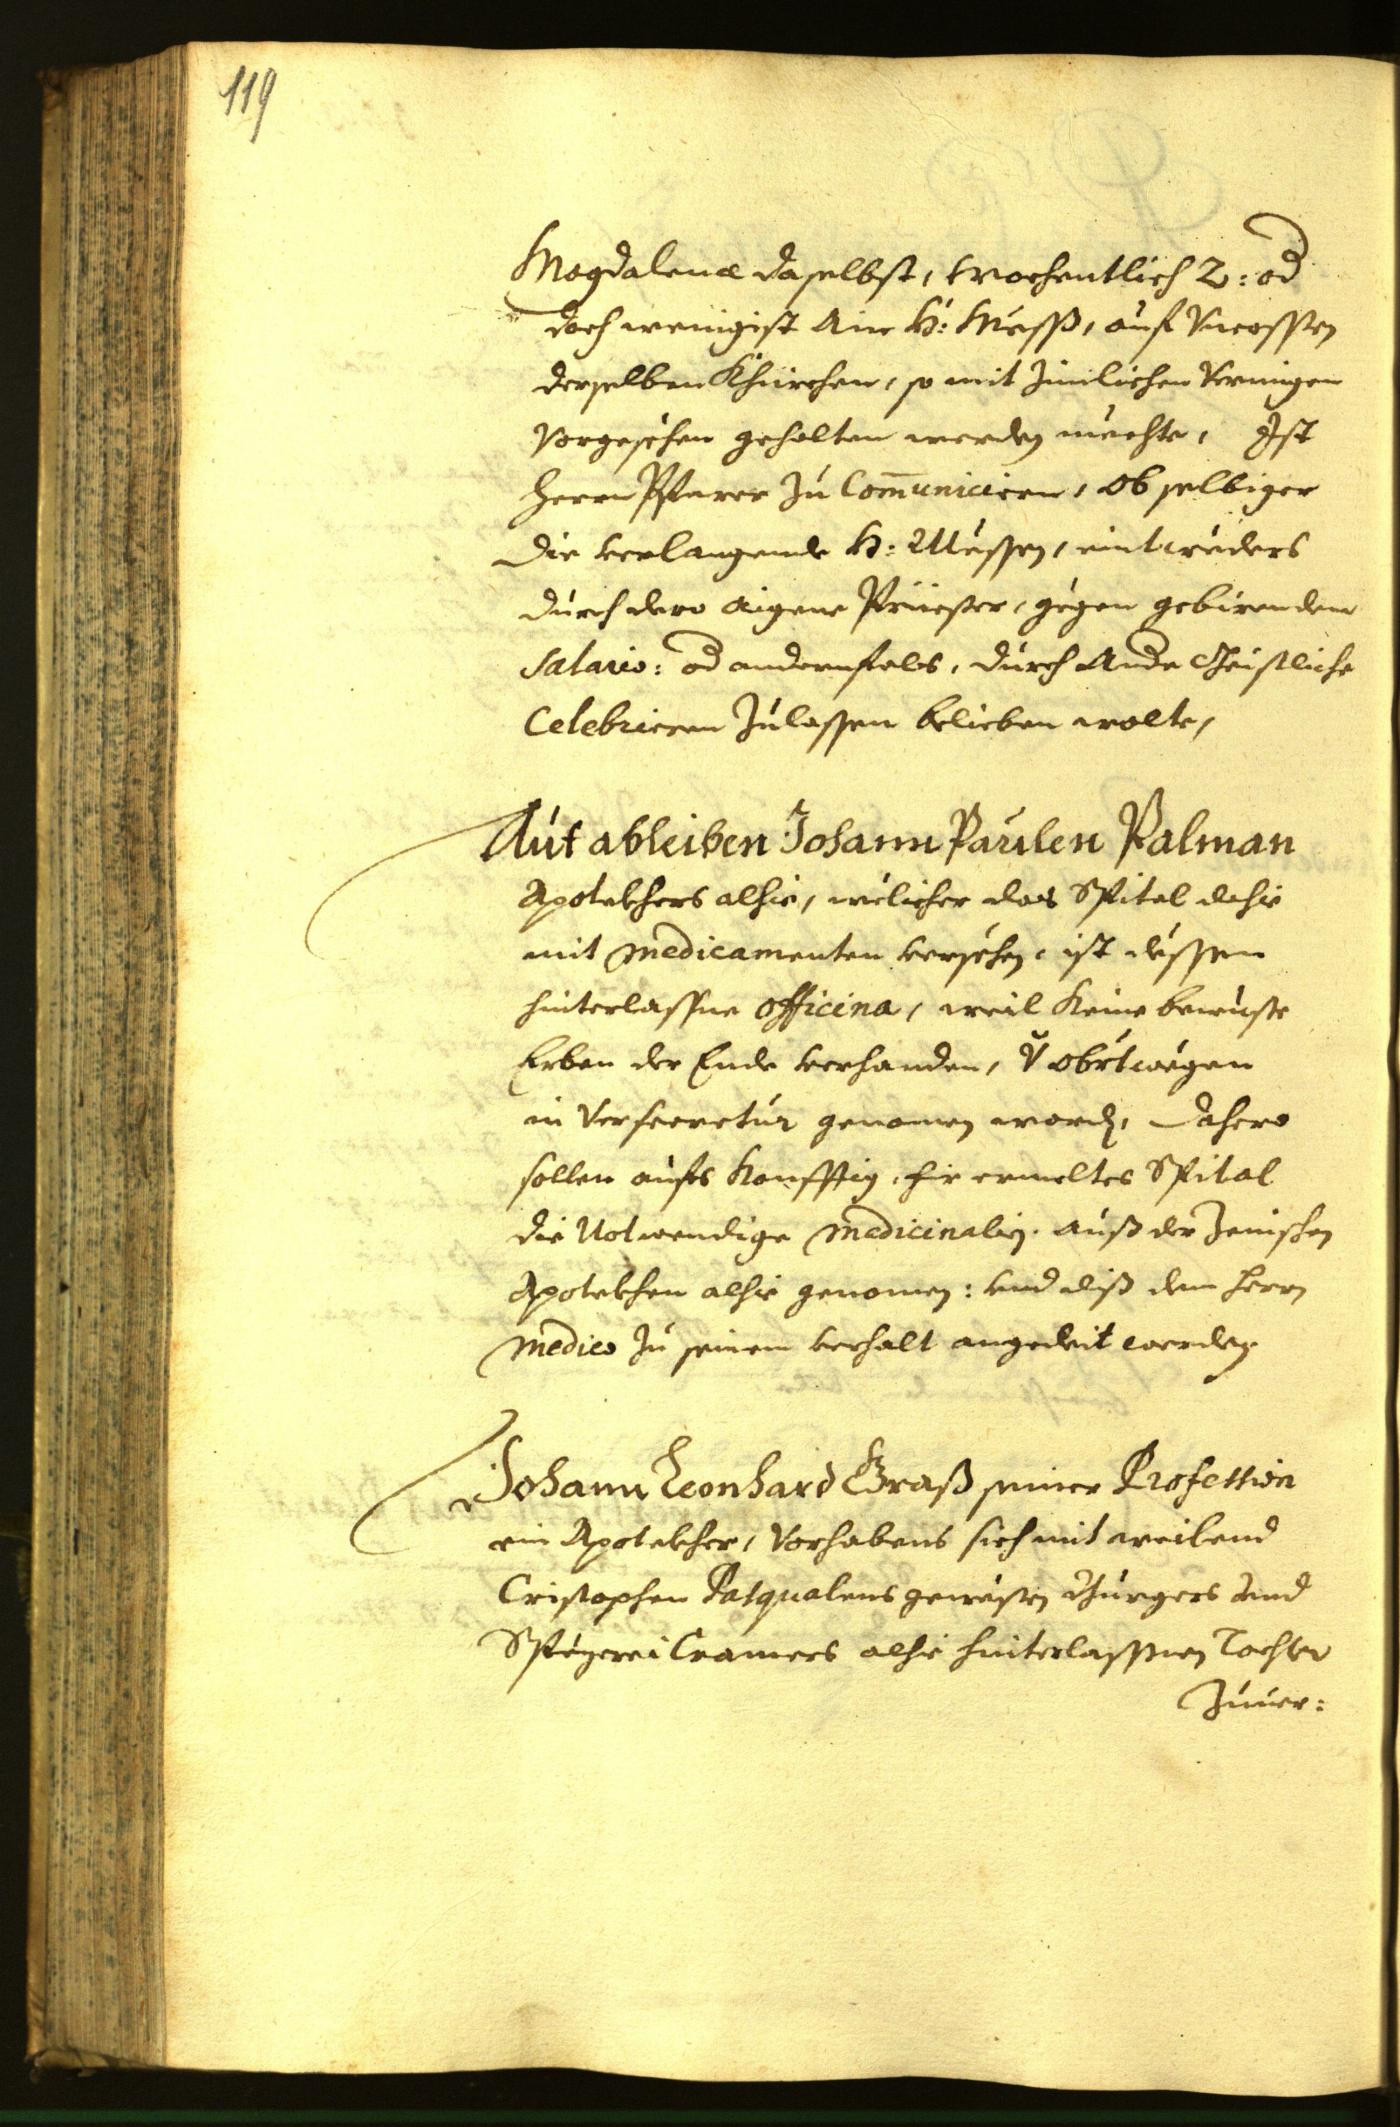 119
Magdalenæ daselbst, wochentlich 2: od
doch wenigist Aine H: Mëss, auf Vncossten
derselben Khürchen, so mit zimlichen Vermigen
Vorgesëhen gehalten werden mëchte, Ist
Herrn Pfarer zu Com̄unicieren, ob selbiger
die verlangende H: Mëssen, eintwëders
durch dero aigene Priester, gëgen gebirendem
Salario: od andernfals, durch Ande Geistliche
Celebrieren zulassen belieben wolte,
Aut ableiben Johann Paulen Palman
Apotekhers alhie, wëlicher das Spital dahie
mit Medicamenten versëhen, ist dëssen
hinterlassne officina, weil keine bewuste
Erben der Ende verhanden, V obrtwëgen
in Verseeretur genomen word, Dahero
sollen aufs konfftig, fir ermeltes Spital
die Notwendige Medicinalien auß der Jenischen
Apotekhen alhie genomen: vnd diß dem Herrn
Medico zu seinem verhalt angedeit werden.
Johann Leonhard Graß seiner Profession
ein Apotekher, Vorhabens sich mit weilend
Cristophen Pasqualens gewësten Burgers vnd
Spëzerei Cramers alhie hinterlassnen Tochter
Zuuer: